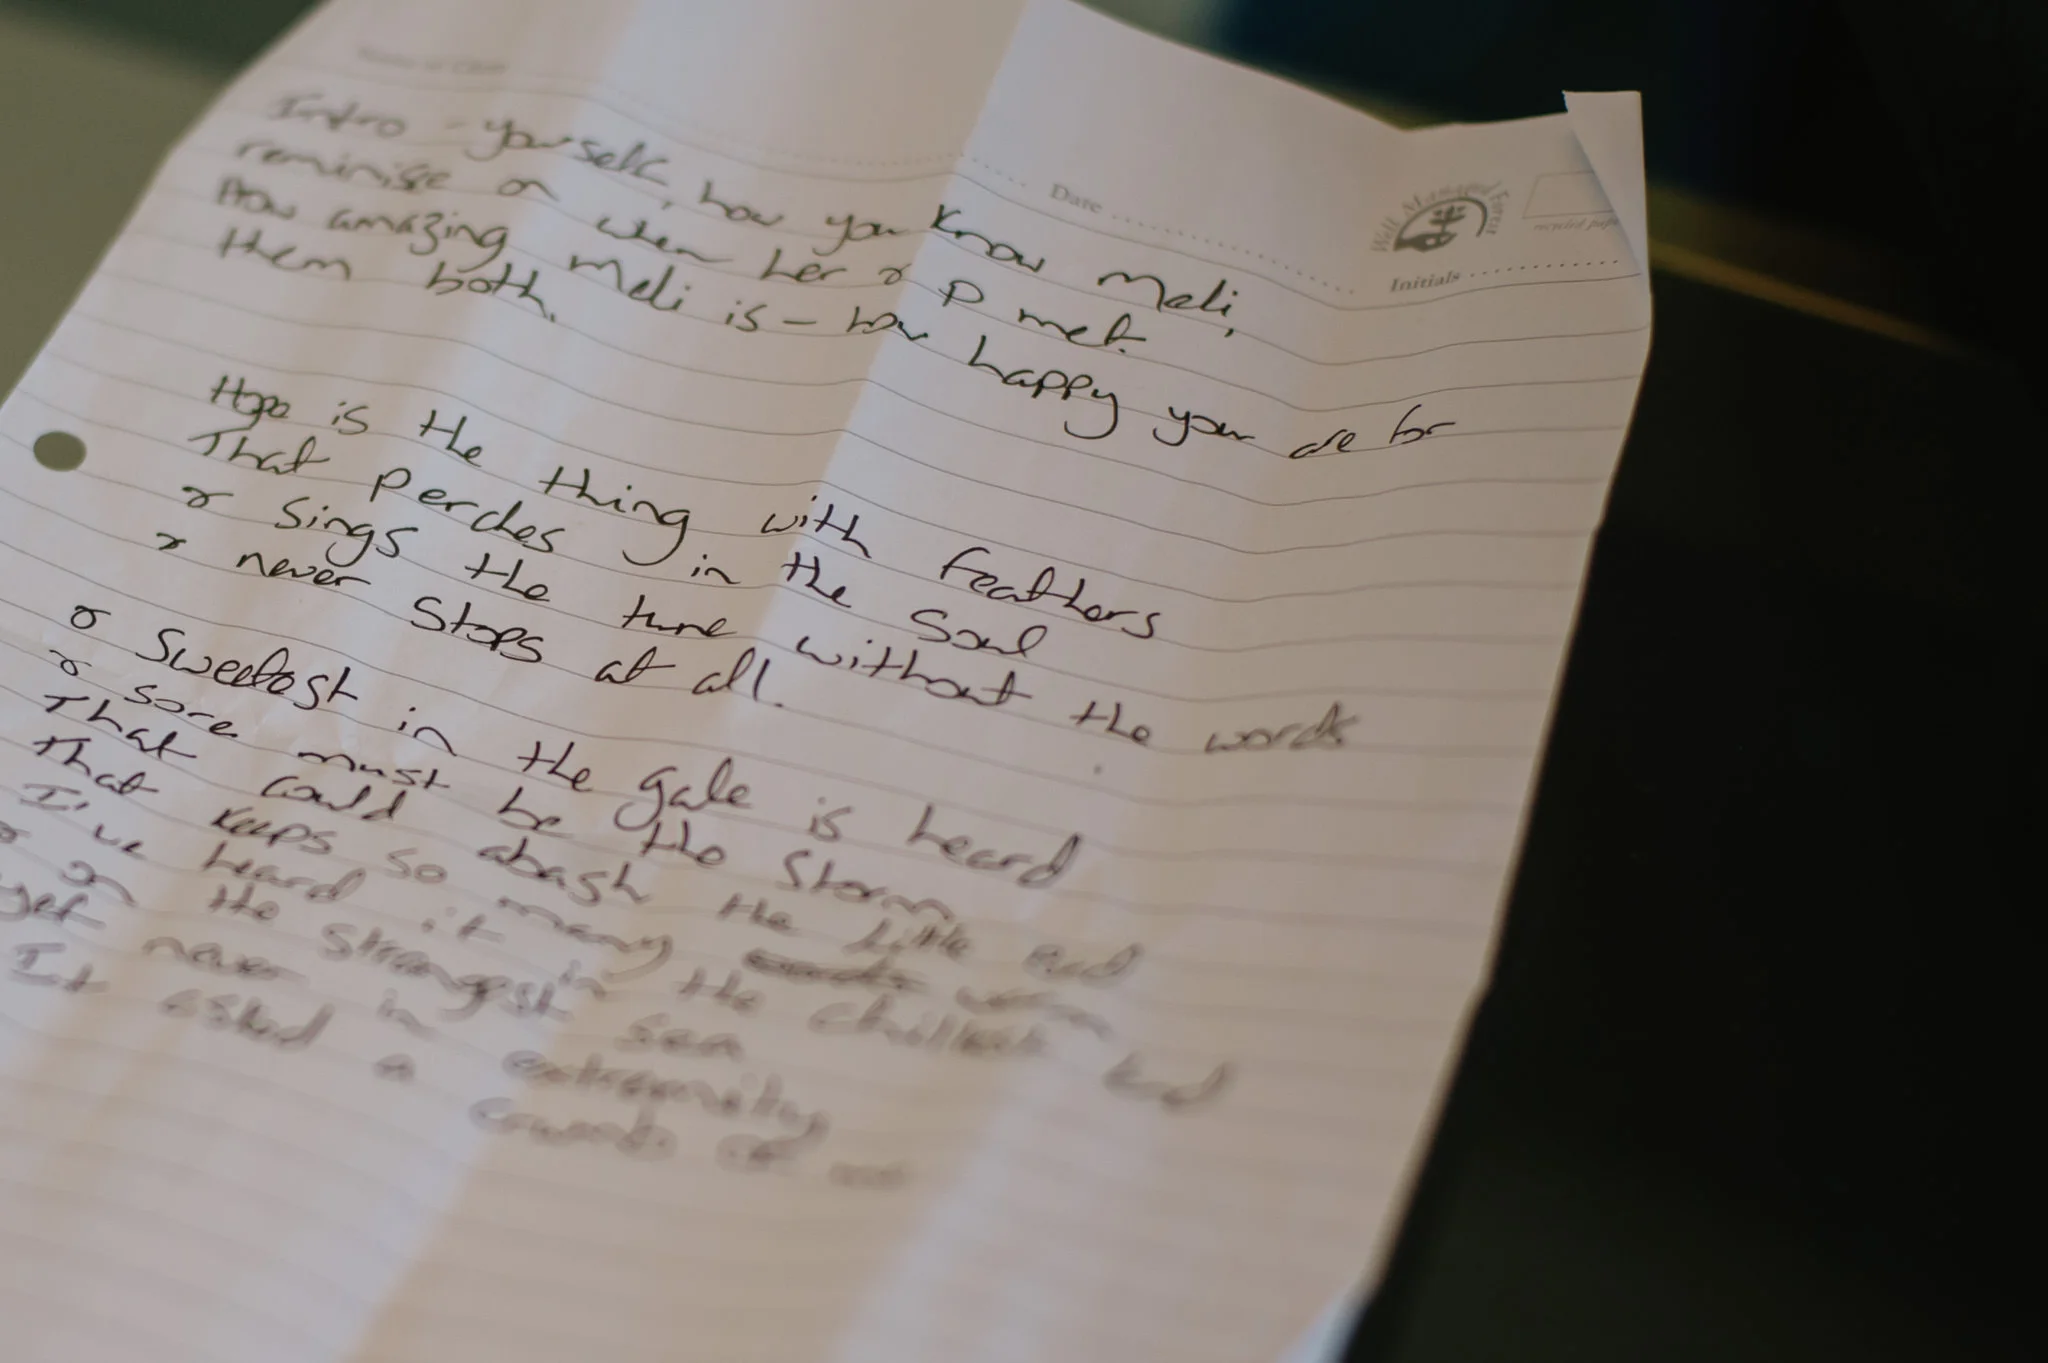 Date
Well Managed Forests
recycled paper
Initials
Intro - yourself, how you know Meli,
reminise on when her & P met.
How amazing Meli is - how happy your are for
them both.
Hope is the thing with feathers
That perches in the Soul
& sings the tune without the words
& never Stops at all.
& Sweetest in the gale is heard
& sore must be the storm
That could abash the little Bird
That keeps so many warm
I've heard it in the chillest land
& on the strangest sea
yet never in extremity
It asked a crumb of me